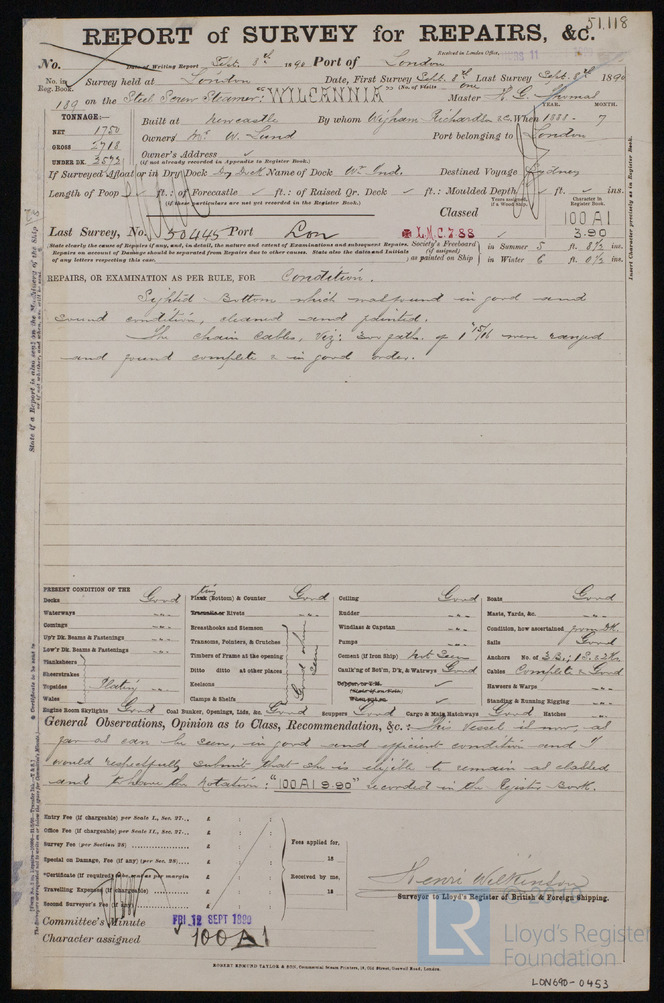 51,118
REPORT of SURVEY for REPAIRS, &c.
Received in London Office,
No. Date of Writing Report Sept. 8th 1890 Port of London
No. in Reg. Book. Survey held at London Date, First Survey Sept. 8th Last Survey Sept. 8th 1890
(No. of Visits one
189 on the Steel Screw Steamer "WILCANNIA" Master
YEAR. MONTH.
TONNAGE:—
NET 1750
GROSS 2718
UNDER DK.
Built at Newcastle By whom Wigham Richardson & Co. When 1888 - 7
Owners Mr W. Lund Port belonging to London
Owner's Address ✓
(if not already recorded in Appendix to Register Book.)
If Surveyed Afloat or in Dry Dock Dry Dock Name of Dock W. Ind. Destined Voyage Sydney
Length of Poop ✓ ft.: of Forecastle ✓ ft.: of Raised Qr. Deck ✓ ft.: Moulded Depth ✓ ft. ✓ ins.
(if these particulars are not yet recorded in the Register Book.)
Years assigned, if a Wood Ship.
Character in Register Book.
Classed
100 A1
3.90
Last Survey, No. 50445 Port Lon
L.M.C.7 88
(State clearly the cause of Repairs if any, and, in detail, the nature and extent of Examinations and subsequent Repairs.
Repairs on account of Damage should be separated from Repairs due to other causes. State also the dates and initials
of any letters respecting this case.
Society's Freeboard (if assigned) as painted on Ship
in Summer 5 ft. 8½ ins.
in Winter 6 ft. 0½ ins.
Insert Character precisely as in Register Book.
REPAIRS, OR EXAMINATION AS PER RULE, FOR Condition.
Sighted bottom which was found in good and
sound condition, cleaned and painted.
The chain cables, viz: 300 faths. of 1 15/16 were ranged
and found complete & in good order.
PRESENT CONDITION OF THE
Decks Good
Waterways
Comings
Up'r Dk. Beams & Fastenings
Low'r Dk. Beams & Fastenings
Planksheers
Sheerstrakes
Topsides Plating
Wales
Engine Room Skylights Good
Plating (Bottom) & Counter Good
Treenails or Rivets
Breasthooks and Stemson
Transoms, Pointers, & Crutches
Timbers of Frame at the opening
Ditto ditto at other places
Keelsons
Clamps & Shelfs
Good where seen
Coal Bunker, Openings, Lids, &c. Good
Ceiling Good
Rudder
Windlass & Capstan
Pumps
Cement (if Iron Ship) Not Seen
Caulk'ng of Bot'm, D'k, & Watrwys Good
Scuppers Good Cargo & Main Hatchways Good Hatches
Boats Good
Masts, Yards, &c.
Condition, how ascertained from Dk.
Sails Good
Anchors No. of 3 B.; 1 S. 2 K.
Cables Complete & Good
Hawsers & Warps
Standing & Running Rigging
General Observations, Opinion as to Class, Recommendation, &c.: This vessel is now, as
far as can be seen, in good and efficient condition and I
would respectfully submit that she is eligible to remain as classed
and to have the notation: "100 A1 9.90" recorded in the Register book.
Entry Fee (if chargeable) per Scale I., Sec. 27... £
Office Fee (if chargeable) per Scale II., Sec. 27... £
Survey Fee (per Section 28) £
Special on Damage, Fee (if any) (per Sec. 28) £
*Certificate (if required) as per margin £
Travelling Expenses (if chargeable) £
Second Surveyor's Fee (if any) £
Fees applied for,
18
Received by me,
18
Henri Wilkinson
Surveyor to Lloyd's Register of British & Foreign Shipping.
Committee's Minute FRI. 12 SEPT 1890
Character assigned 100 A 1
ROBERT EDMUND TAYLOR & SON, Commercial Steam Printers, 19, Old Street, Goswell Road, London.
LR
Lloyd's Register
Foundation
LON690-0453